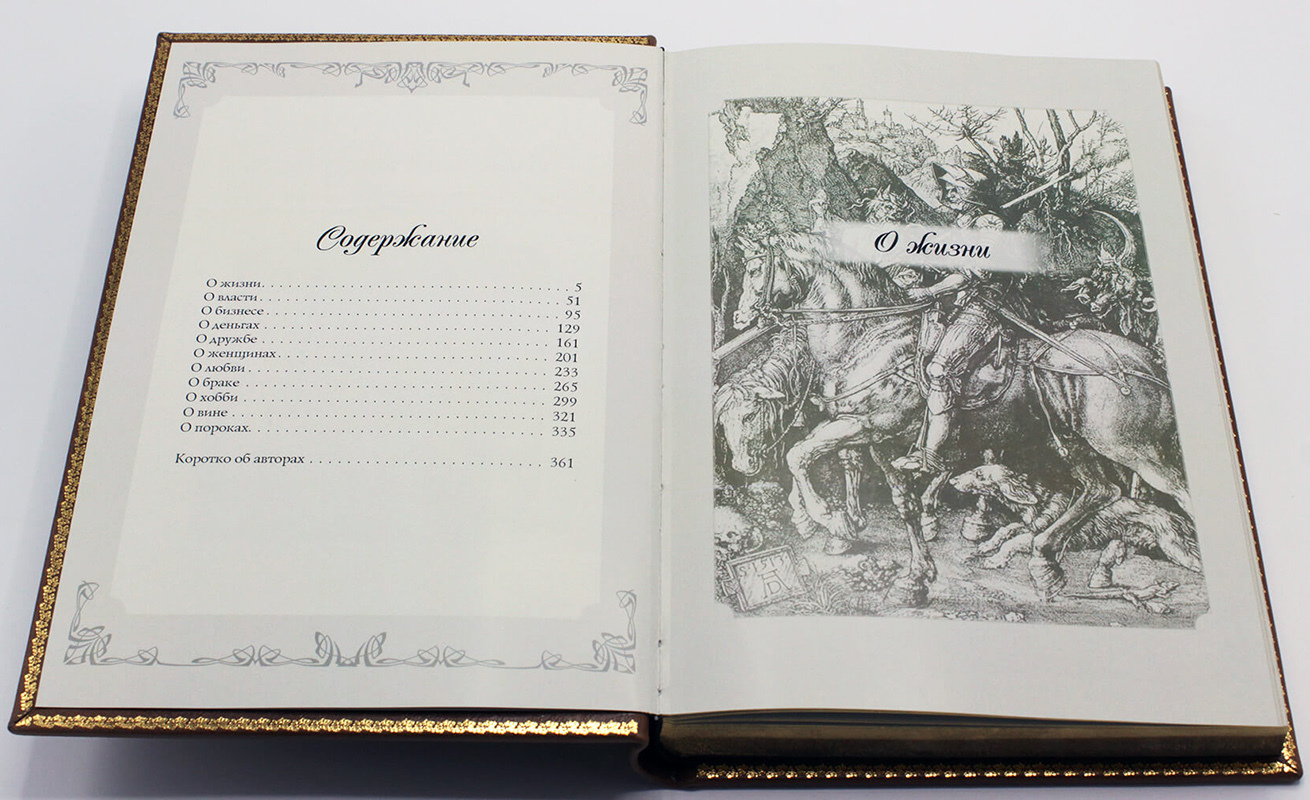 Содержание
О жизни. . . . . . . . . . . . . . . . . . . . . . . . . . . . . . . 5
О власти . . . . . . . . . . . . . . . . . . . . . . . . . . . . . . 51
О бизнесе . . . . . . . . . . . . . . . . . . . . . . . . . . . . . 95
О деньгах . . . . . . . . . . . . . . . . . . . . . . . . . . . . 129
О дружбе . . . . . . . . . . . . . . . . . . . . . . . . . . . . 161
О женщинах . . . . . . . . . . . . . . . . . . . . . . . . . . 201
О любви . . . . . . . . . . . . . . . . . . . . . . . . . . . . . 233
О браке . . . . . . . . . . . . . . . . . . . . . . . . . . . . . 265
О хобби . . . . . . . . . . . . . . . . . . . . . . . . . . . . . 299
О вине . . . . . . . . . . . . . . . . . . . . . . . . . . . . . . 321
О пороках. . . . . . . . . . . . . . . . . . . . . . . . . . . . 335
Коротко об авторах . . . . . . . . . . . . . . . . . . . . . . 361
О жизни